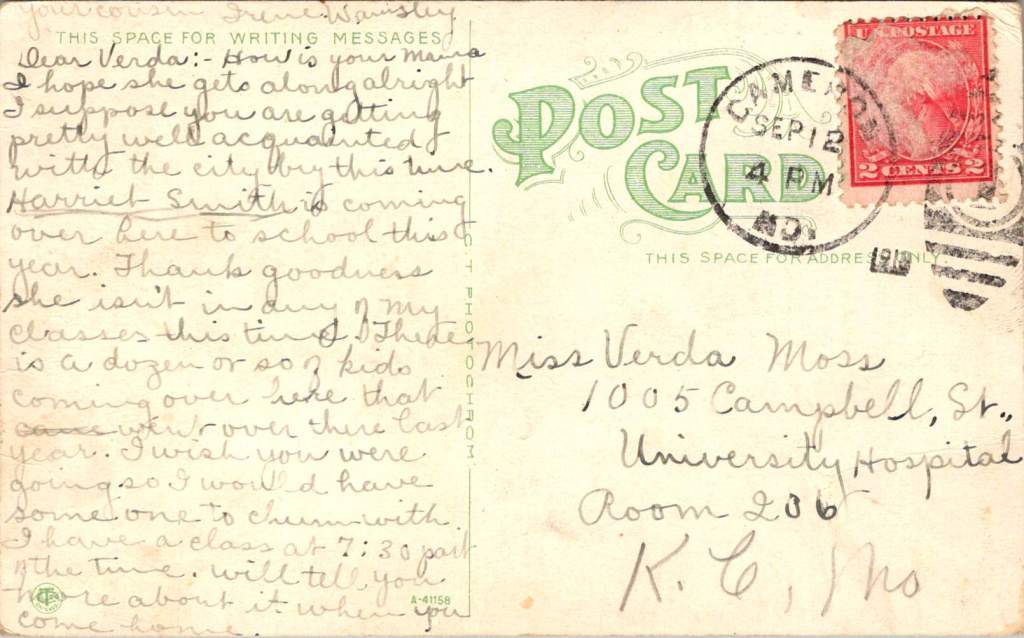 your cousin Irene Wamsley
THIS SPACE FOR WRITING MESSAGES
Dear Verda:- How is your Mama
I hope she gets along alright
I suppose you are getting
pretty well acquainted
with the city by this time.
Harriet Smith is coming
over here to school this
year. Thank goodness
she isn't in any of my
classes this time. There
is a dozen or so of kids
coming over here that
came went over there last
year. I wish you were
going so I would have
some one to chum with
I have a class at 7:30 part
of the time. will tell you
more about it when you
come home.
C.T. PHOTOCHROM
A-41158
POST
CARD
THIS SPACE FOR ADDRESS ONLY.
CAMERON
SEP 12
4 PM
MO.
U.S. POSTAGE
2 CENTS 2
Miss Verda Moss
1005 Campbell, St.,
University Hospital
Room 206
K. C, Mo